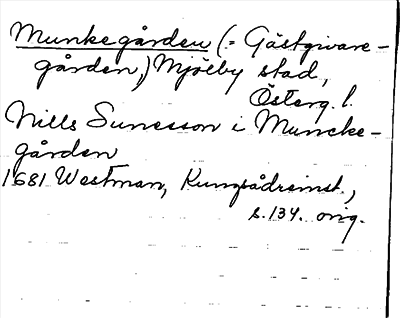 Munkegården (= Gästgivare-
gården,) Mjölby stad,
Österg. l.
Nills Sunesson i Muncke-
gården
1681 Westman, Kungsådreinst.,
s. 134. orig.